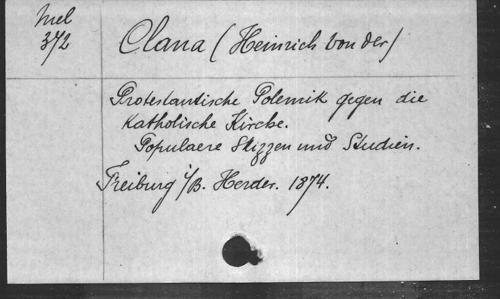 Mel
372
Clana (Heinrich von der)
Protestantische Polemik gegen die
Katholische Kirche.
Populaere Skizzen und Studien.
Freiburg i/B. Herder. 1874.